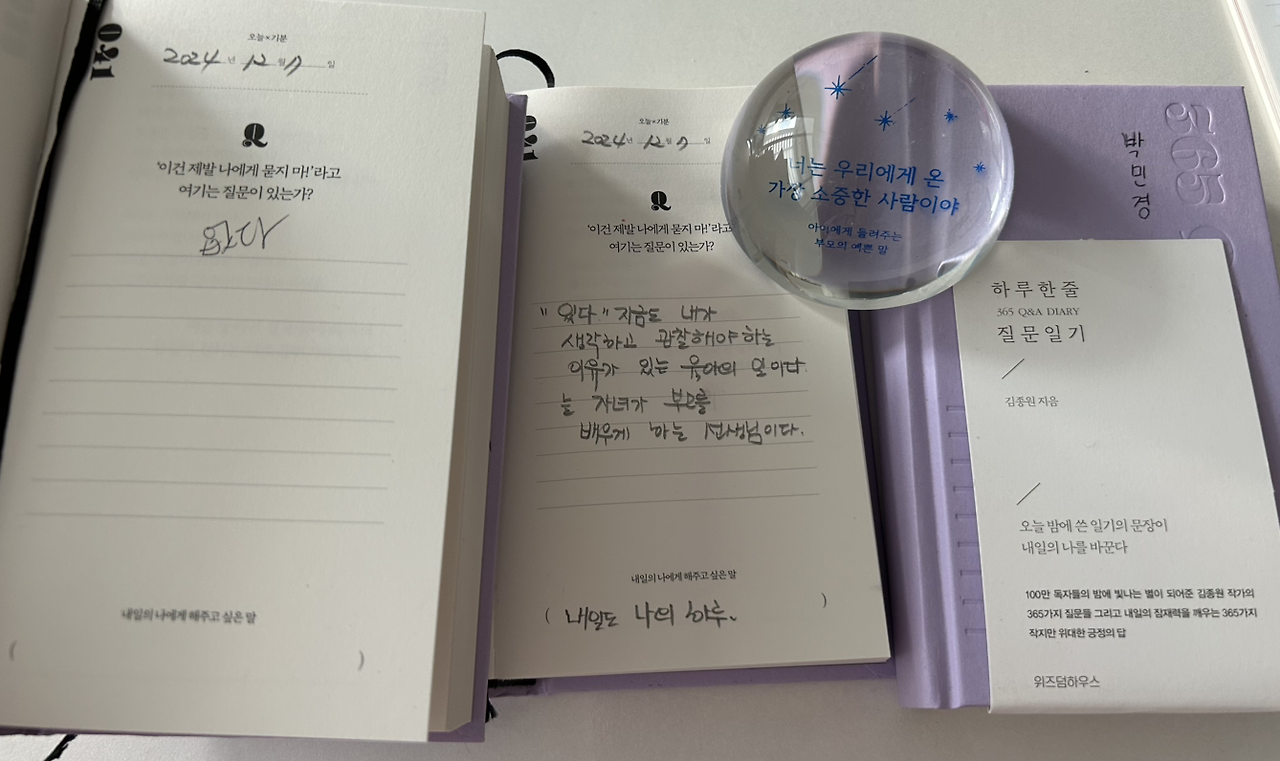 021
오늘×기분
2024년 12월 7일
Q
'이건 제발 나에게 묻지 마!'라고
여기는 질문이 있는가?
내일의 나에게 해주고 싶은 말
( )
021
오늘×기분
2024년 12월 7일
Q
'이건 제발 나에게 묻지 마!'라고
여기는 질문이 있는가?
"있다" 지금도 내가
생각하고 관찰해야 하는
이유가 있는 육아의 일이다
늘 자녀가 부모를
배우게 하는 선생님이다.
내일의 나에게 해주고 싶은 말
( 내일도 나의 하루. )
너는 우리에게 온
가장 소중한 사람이야
아이에게 들려주는
부모의 예쁜 말
365
박민경
하루 한 줄
365 Q&A DIARY
질문 일기
김종원 지음
오늘 밤에 쓴 일기의 문장이
내일의 나를 바꾼다
100만 독자들의 밤에 빛나는 별이 되어준 김종원 작가의
365가지 질문들 그리고 내일의 잠재력을 깨우는 365가지
작지만 위대한 긍정의 답
위즈덤하우스